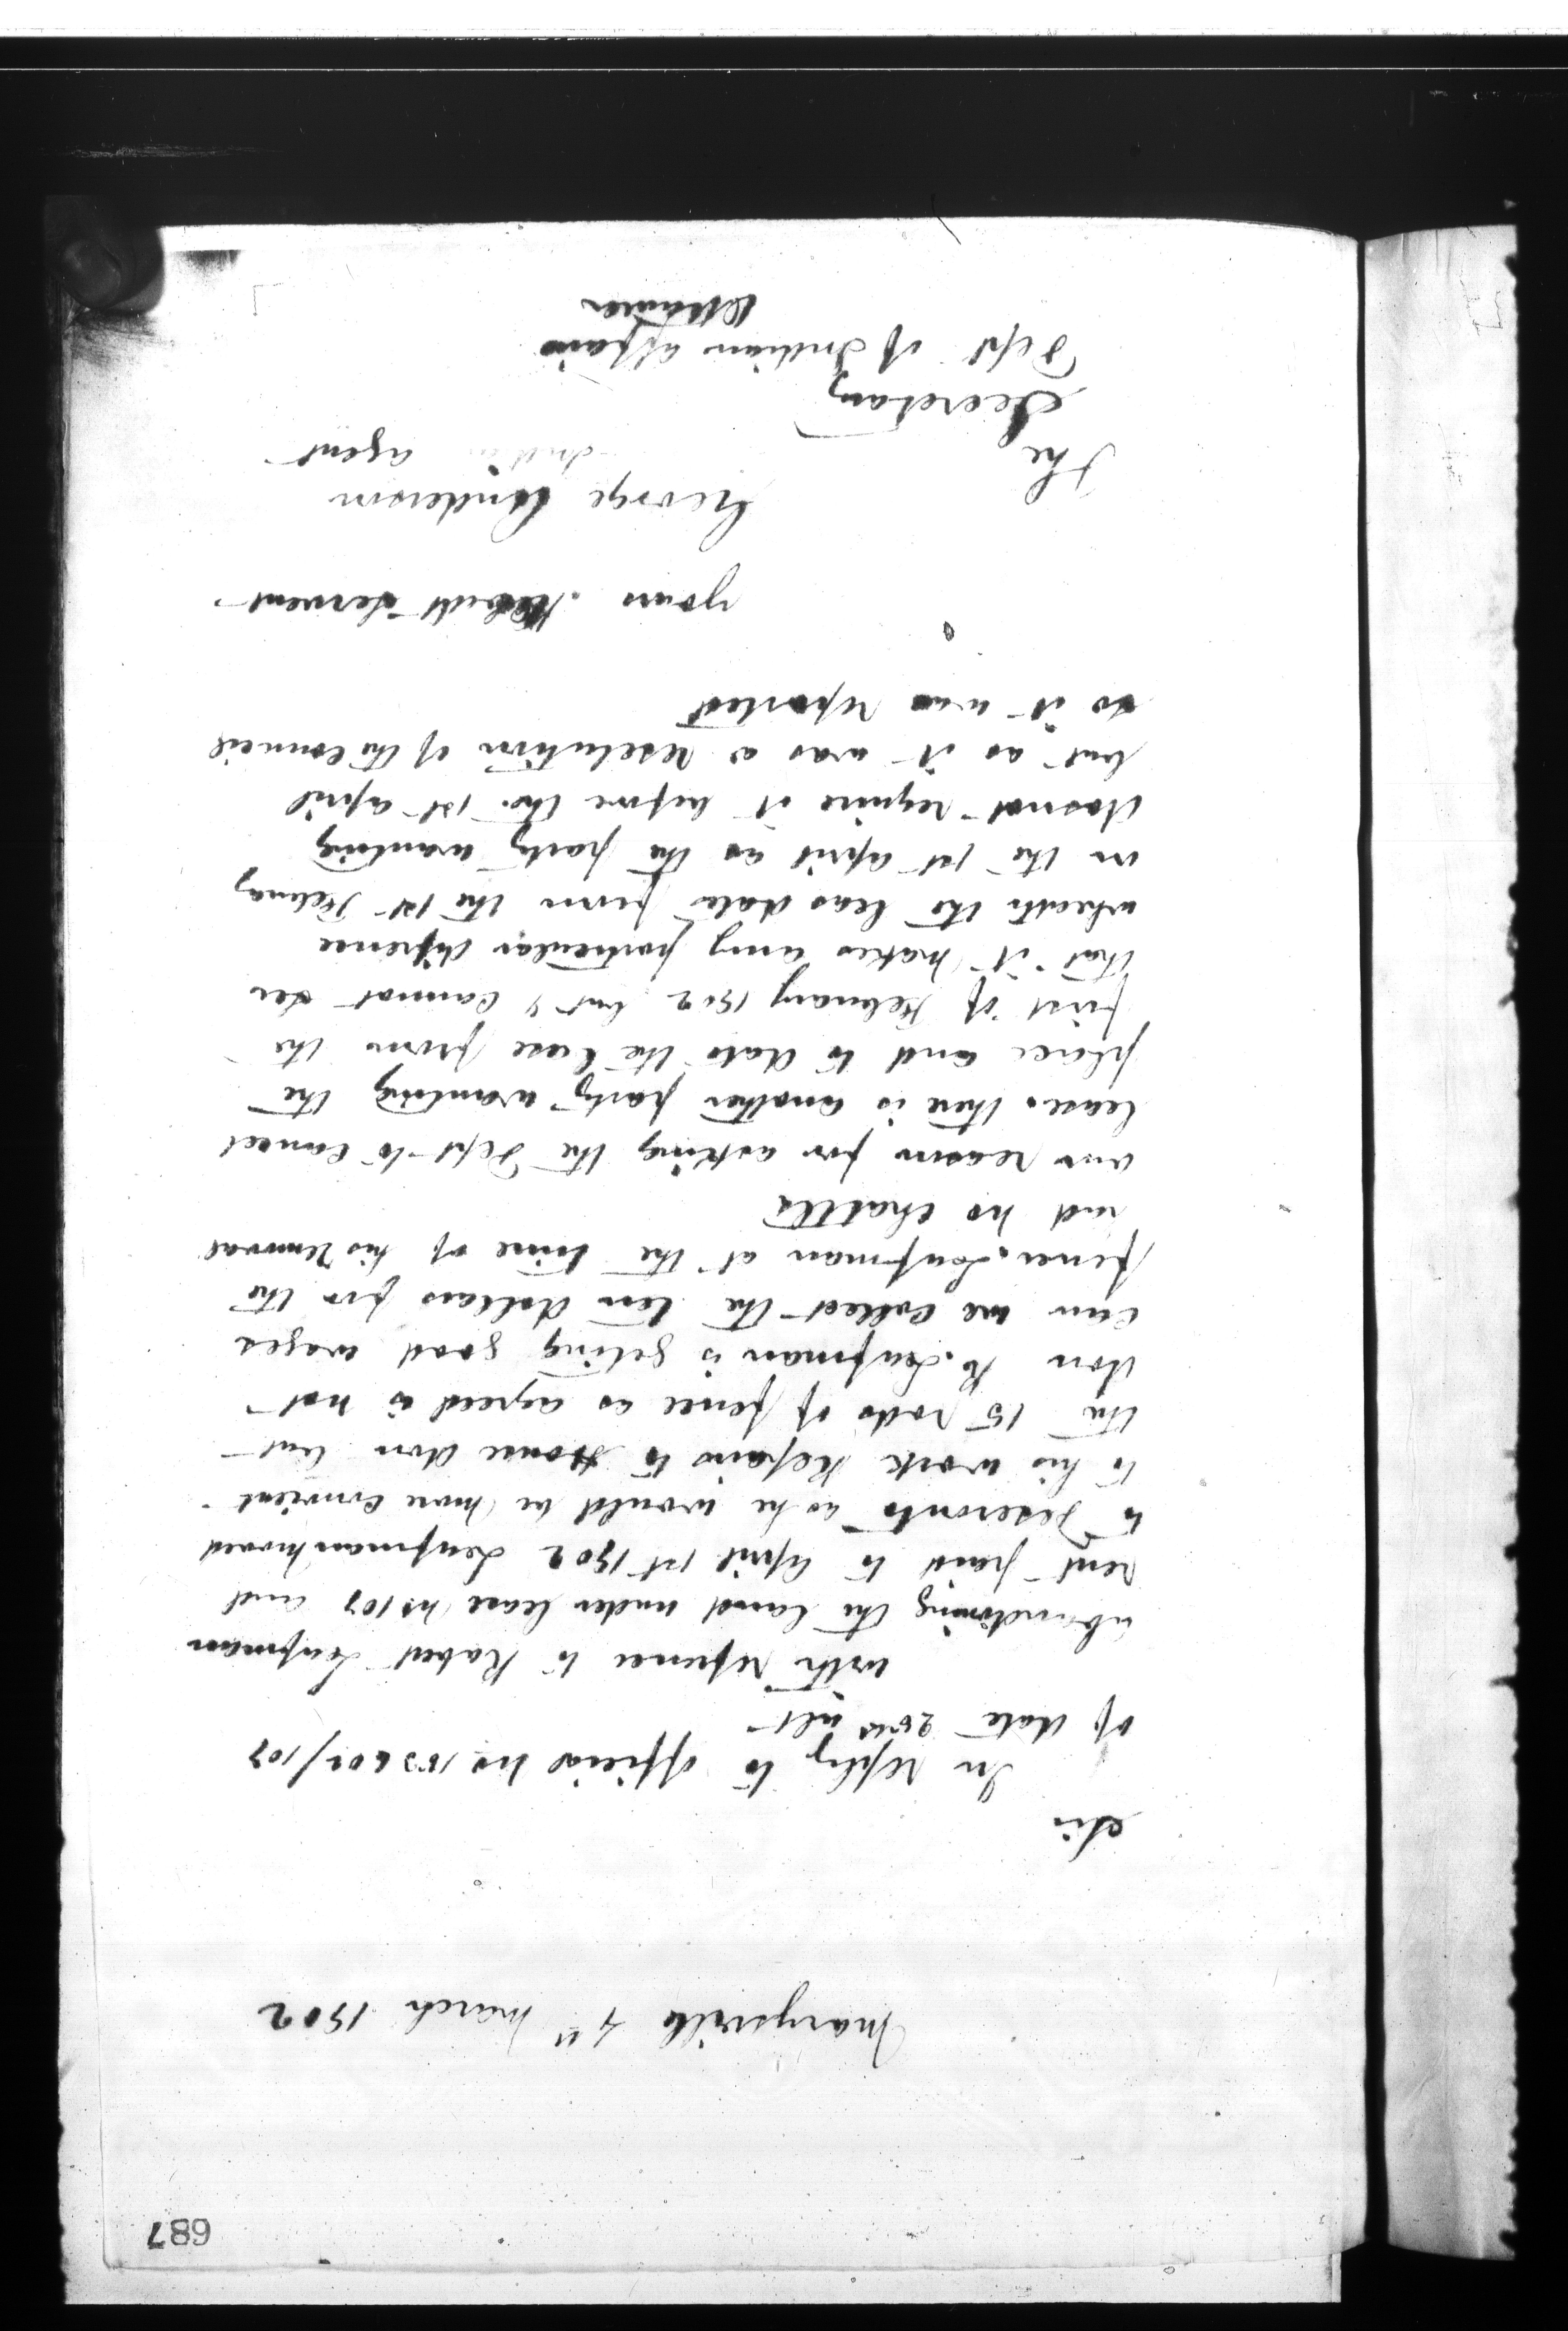 687
Marysville 4th March 1902
Sir
In reply to official no
of date 20th ult
with refrence to Robert Leafman
abandoning the land under lease no 107 and
rent paid to April 1st 1902 Leafman moved
to Deseronto as he would be more convient
to his work Repairs to House don but
the 15 rods of fence as agreed is not
don R. Leafman is geting good wages
can we collect the ten dollars for the
fence. Leafman at the time of his removal
had no chattls
our reason for asking the Dept to cancel
lease. there is another party wanting the
place and to date the lease from the
first of Febuary 1902 but I cannot see
that it makes any particular difrence
wheath the leas date from the 1st Febuay
or the 1st April as the party wanting
dosnot require it before the 1st April
but as it was a resolution of the Council
so it was reported
yours Obedt Servent
George Anderson
Indian agent
The
Secretary
Dept of Indian affairs
Ottawa